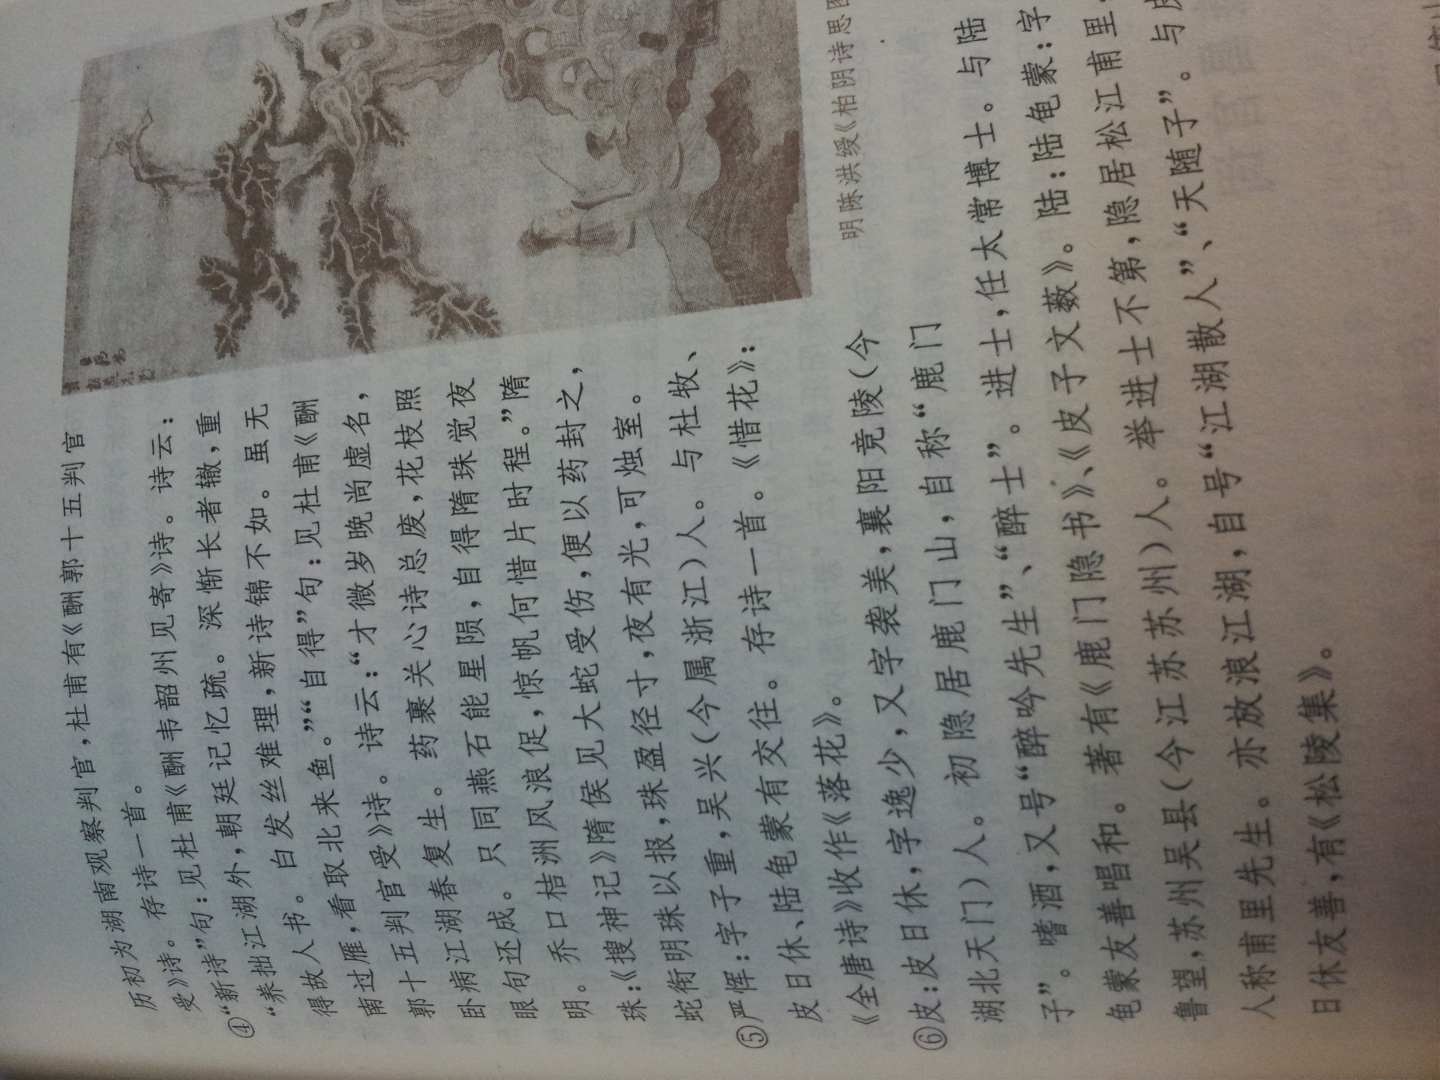 历初为湖南观察判官，杜甫有《酬郭十五判官
受》诗。存诗一首。
④“新诗”句：见杜甫《酬韦韶州见寄》诗。诗云：
“养拙江湖外，朝廷记忆疏。深惭长者辙，重
得故人书。白发丝难理，新诗锦不如。虽无
南过雁，看取北来鱼。”“自得”句：见杜甫《酬
郭十五判官受》诗。诗云：“才微岁晚尚虚名，
卧病江湖春复生。药裹关心诗总废，花枝照
眼句还成。只同燕石能星陨，自得隋珠觉夜
明。乔口桔洲风浪促，惊帆何惜片时程。”隋
珠：《搜神记》隋侯见大蛇受伤，便以药封之，
蛇衔明珠以报，珠盈径寸，夜有光，可烛室。
⑤严恽：字子重，吴兴（今属浙江）人。与杜牧、
皮日休、陆龟蒙有交往。存诗一首。《惜花》：
《全唐诗》收作《落花》。
⑥皮：皮日休，字逸少，又字袭美，襄阳竟陵（今
湖北天门）人。初隐居鹿门山，自称“鹿门
子”。嗜酒，又号“醉吟先生”、“醉士”。进士，任太常博士。与陆
龟蒙友善唱和。著有《鹿门隐书》、《皮子文薮》。陆：陆龟蒙：字
鲁望，苏州吴县（今江苏苏州）人。举进士不第，隐居松江甫里，
人称甫里先生。亦放浪江湖，自号“江湖散人”、“天随子”。与皮
日休友善，有《松陵集》。
明陈洪绶《柏阴诗思图